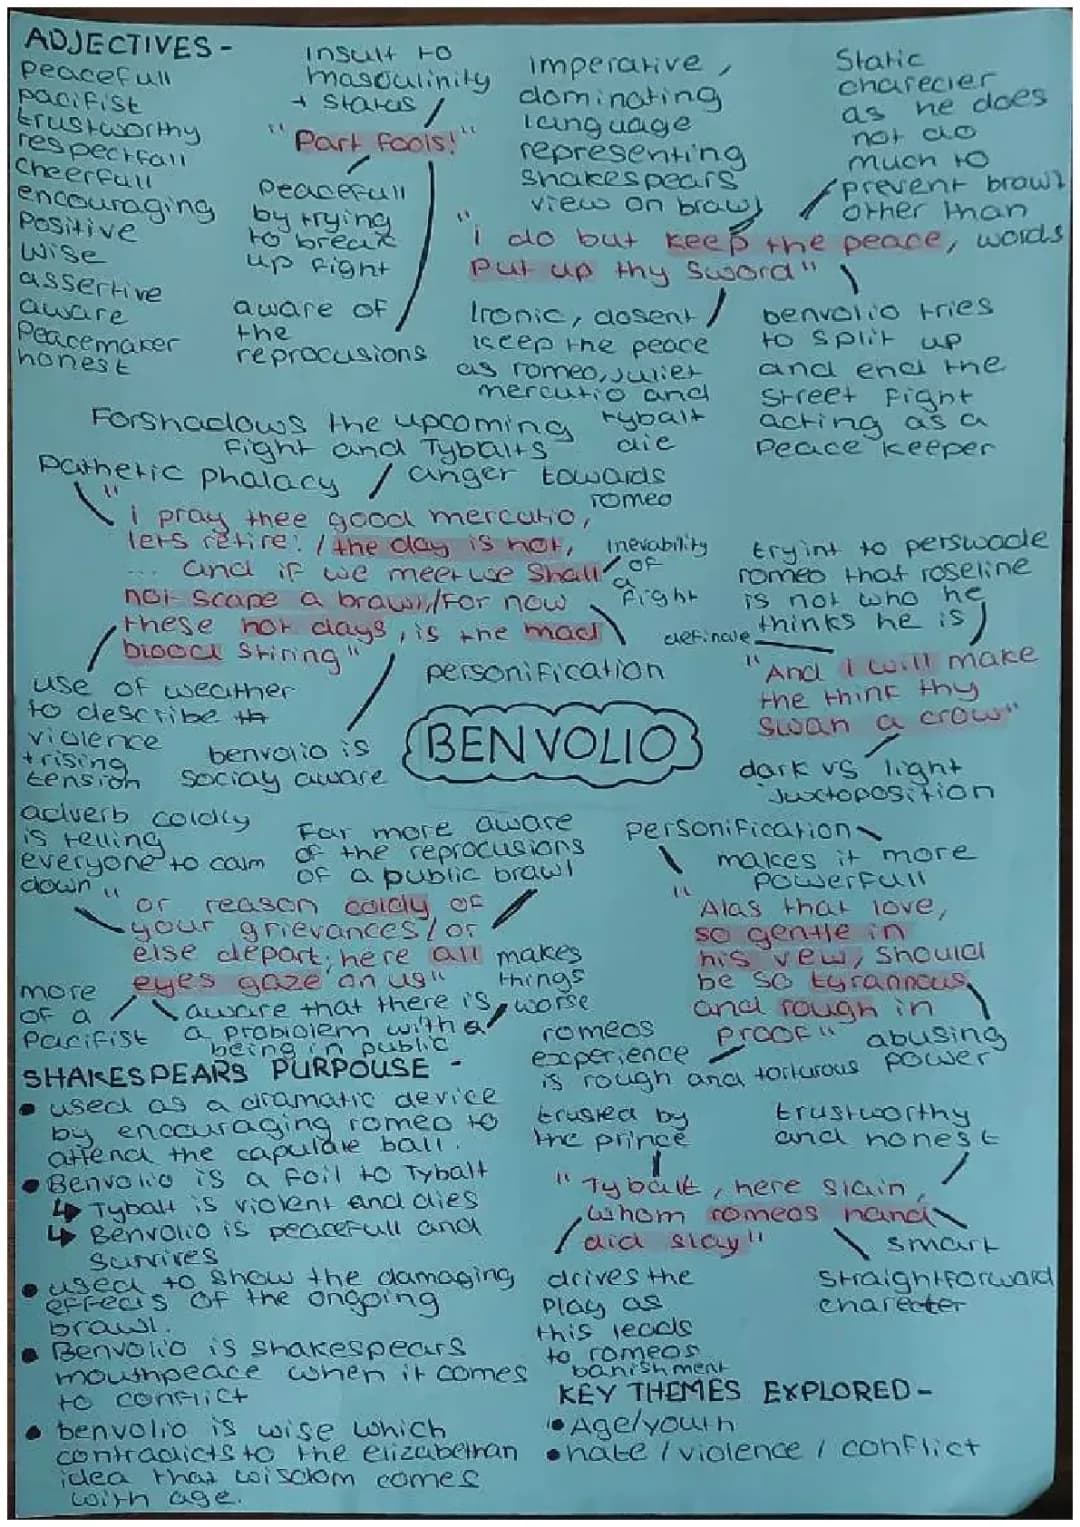 ADJECTIVES -
Peacefull
pacifist
trustworthy
respectfall
cheerfull
encouraging
Positive
wise
assertive
aware
Peacemaker
honest
insult to
masculinity
+ status
"Part fools!"
Peacefull
by trying
to break
up fight
aware of
the
reprocusions
imperative,
dominating
language
representing
Shakespears
view on brawl
Static
charecter
as he does
not do
much to
prevent brawl
other than
"i do but keep the peace, words
put up thy sword"
Ironic, dosent
keep the peace
as romeo, Juliet
mercutio and
tybalt
die
benvolio tries
to split up
and end the
Street fight
acting as a
Peace keeper
Forshadows the upcoming
fight and Tybalts
anger towards
romeo
Pathetic phalacy
"i pray thee good mercutio,
lets retire: / the day is hot,
... and if we meet we shall
not scape a brawl,/For now
these hot days, is the mad
blood stiring"
inevability
of
a
fight
personification
use of weather
to describe th
violence
+ rising
tension
benvolio is
socialy aware
tryint to perswade
romeo that roseline
is not who he
thinks he is
definate
"And I will make
the think thy
swan a crow"
dark vs light
Juxtoposition
BENVOLIO
adverb coldly
is telling
everyone to calm
down
Far more aware
of the reprocusions
of a public brawl
"or reason coldly of
your grievances / or
else depart; here all
eyes gaze on us"
makes
things
worse
more
of a
pacifist
aware that there is
a probiolem with a
being in public
personification
makes it more
powerfull
"Alas that love,
so gentle in
his vew, should
be so tyrannous
and rough in
proof"
abusing
power
romeos
experience
is rough and torturous
SHAKESPEARS PURPOUSE -
• used as a dramatic device
by encauraging romeo to
attend the capulate ball.
• Benvolio is a foil to Tybalt
↳ Tybalt is violent and dies
↳ Benvolio is peacefull and
survives
• used to show the damaging
effecis of the ongoing
brawl.
• Benvolio is shakespears
mouthpeace when it comes
to conflict
• benvolio is wise which
contradicts to the elizabethan
idea that wisdom comes
with age.
trusted by
the prince
trustworthy
and honest
"Tybalt, here slain,
whom romeos hand
did slay"
smart
straightforward
charecter
drives the
play as
this leads
to romeos
banishment
KEY THEMES EXPLORED -
• Age/youth
• hate / violence / conflict